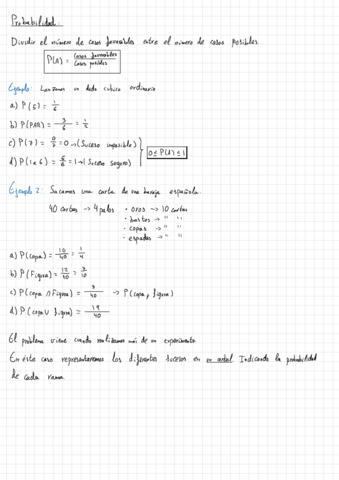 Probabilidad.
Dividir el número de casos favorables entre el número de casos posibles.
P(A) = casos favorables / casos posibles
Ejemplo: Lanzamos un dado cúbico ordinario
a) P(5) = 1/6
b) P(PAR) = 3/6 = 1/2
c) P(7) = 0/6 = 0 → (Suceso imposible)
0 ≤ P(A) ≤ 1
d) P(1 a 6) = 6/6 = 1 → (Suceso seguro)
Ejemplo 2: Sacamos una carta de una baraja española.
40 cartas → 4 palos · oros → 10 cartas
· bastos → " "
· copas → " "
· espadas → " "
a) P(copa) = 10/40 = 1/4
b) P(Figura) = 12/40 = 3/10
c) P(copa ∩ Figura) = 3/40 → P(copa y figura)
d) P(copa ∪ figura) = 19/40
El problema viene cuando realizamos más de un experimento.
En éste caso representaremos los diferentes sucesos en un árbol. Indicando la probabilidad
de cada rama.